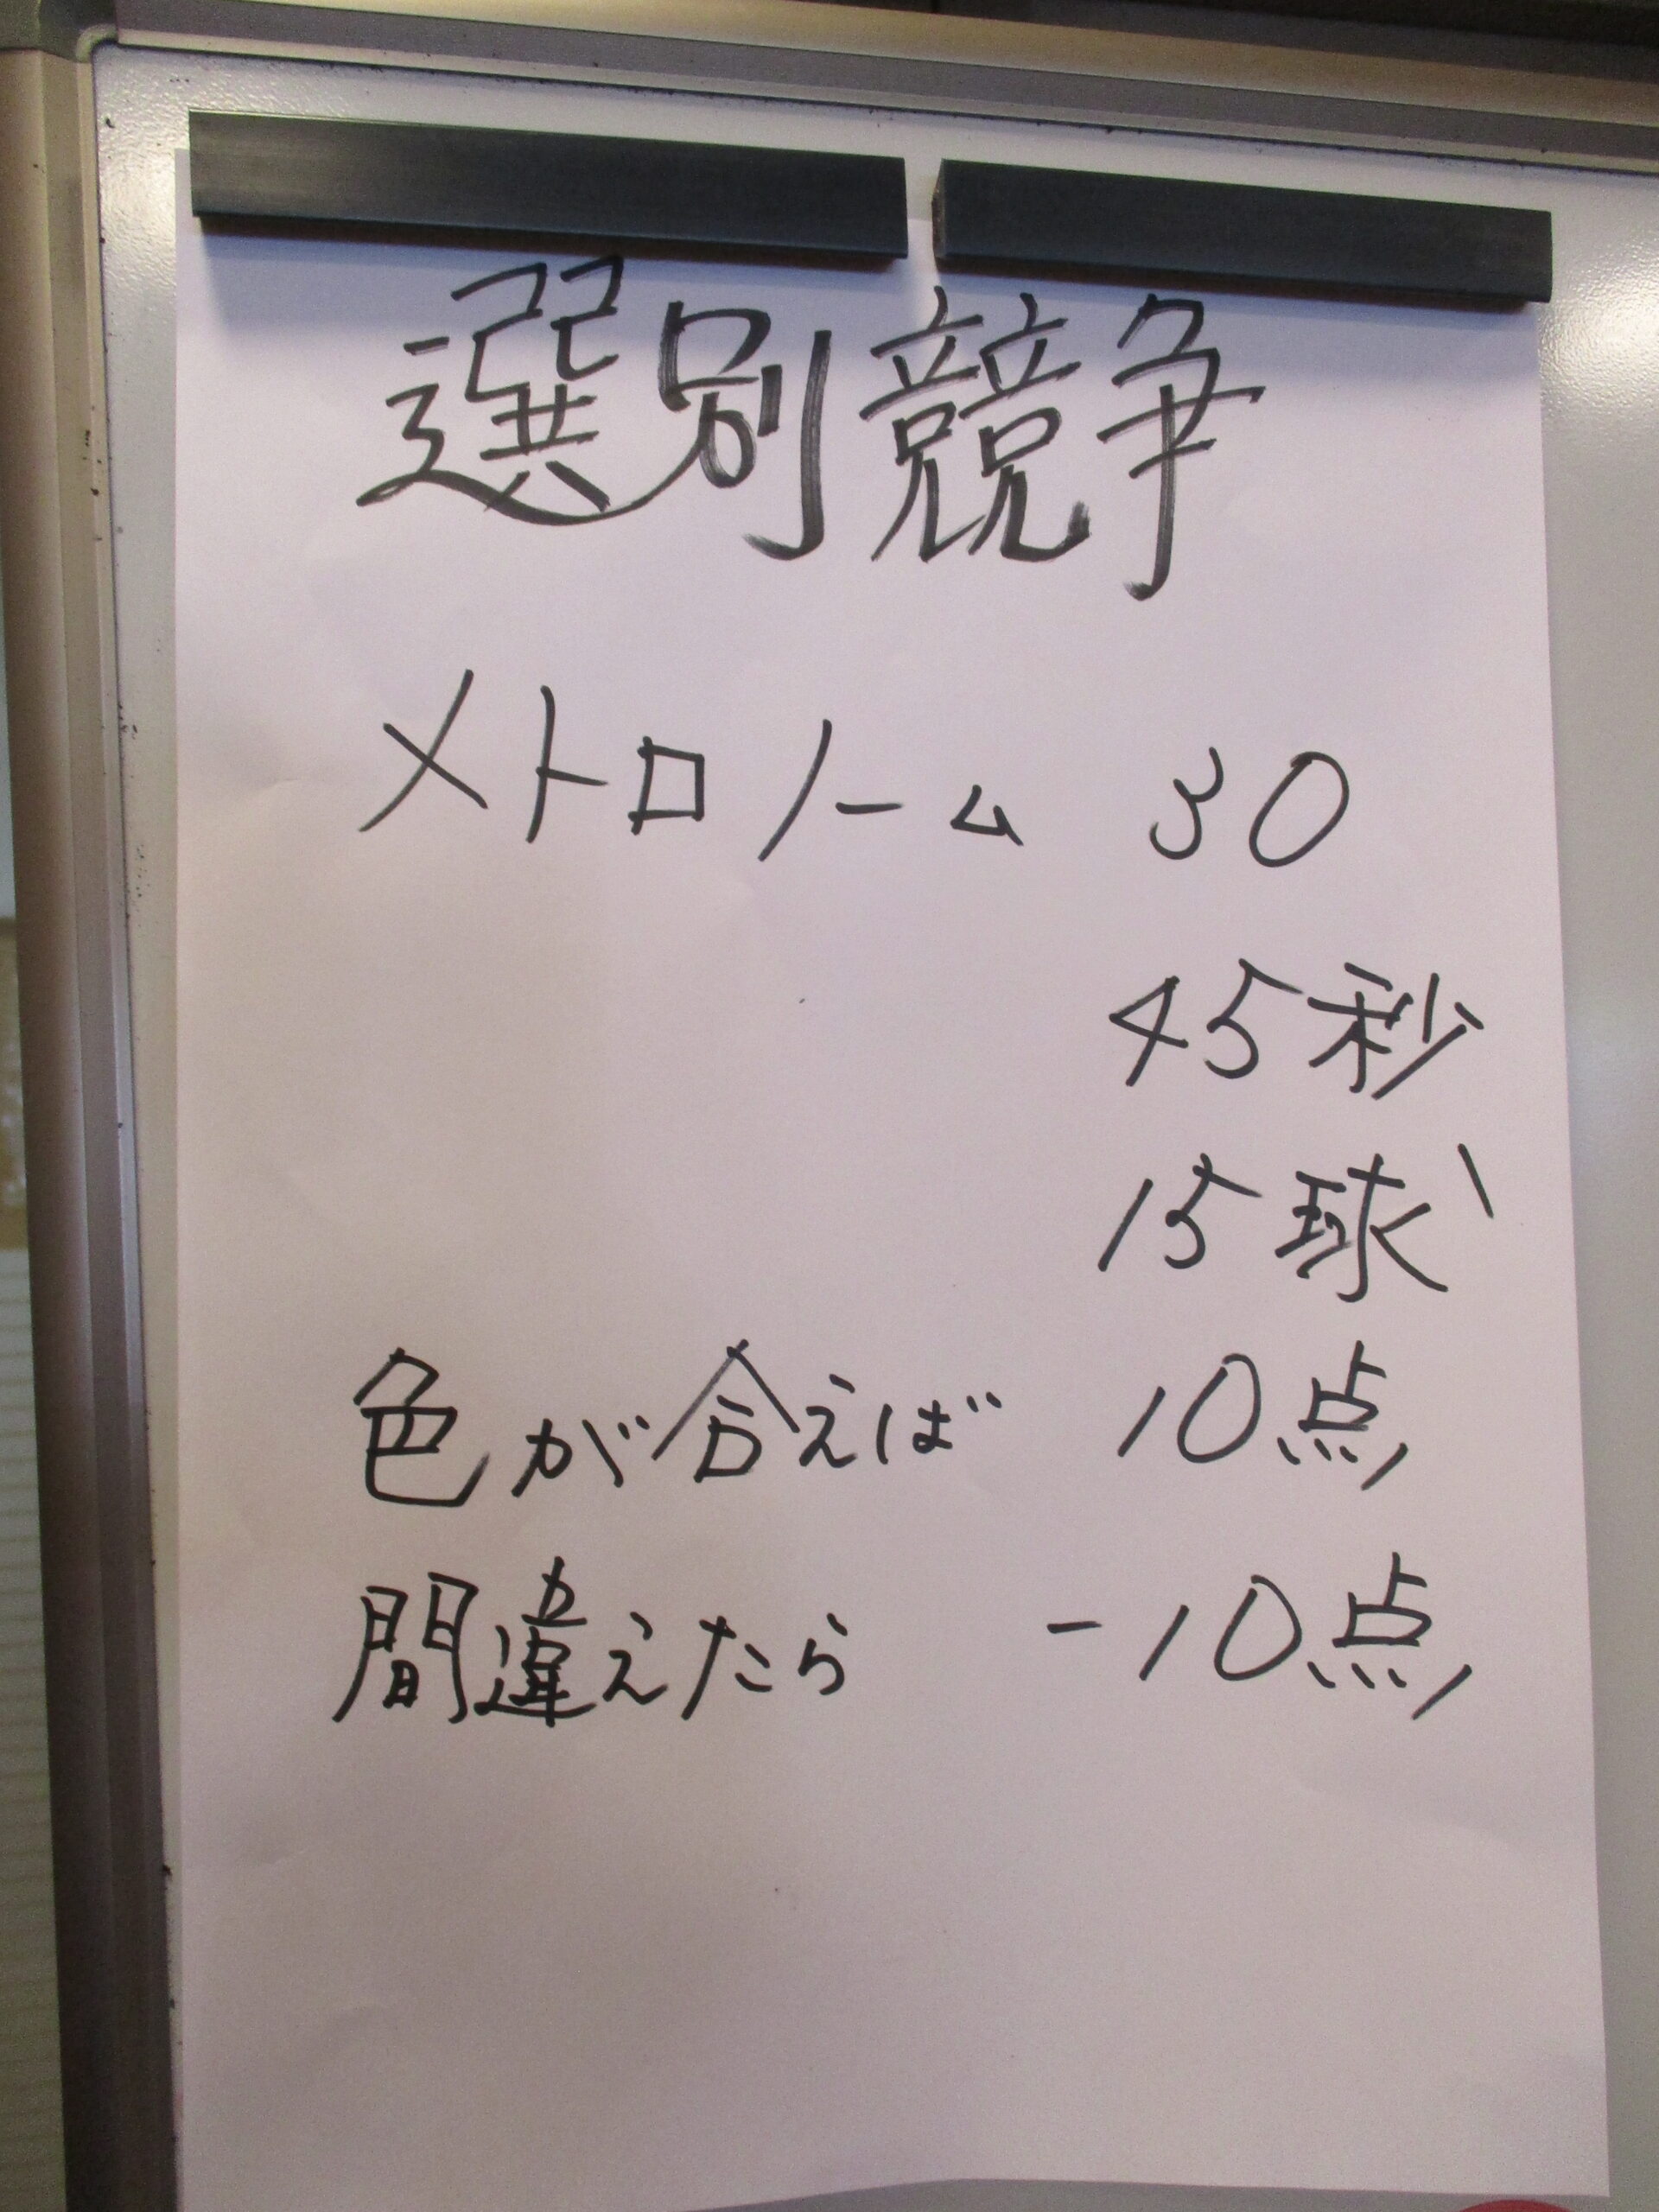 選別競争
メトロノーム 30
45秒
15球
色が合えば 10点
間違えたら -10点